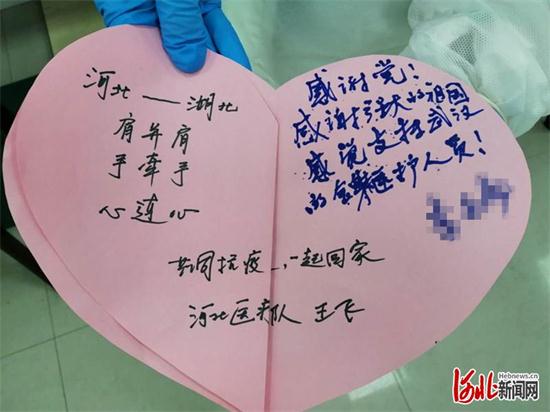 河北——湖北
肩并肩
手牵手
心连心
感谢党！
感谢强大的祖国
感谢支援武汉
的全体医护人员！
共同抗疫，一起回家
河北医疗队 王飞
Hebnews.cn
河北新闻网